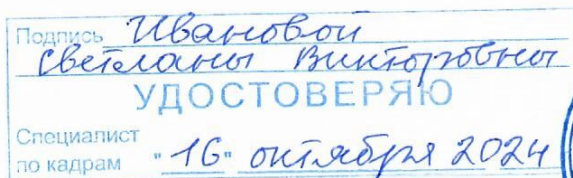 Подпись Ивановой
Светланы Викторовны
УДОСТОВЕРЯЮ
Специалист
по кадрам "16" октября 2024